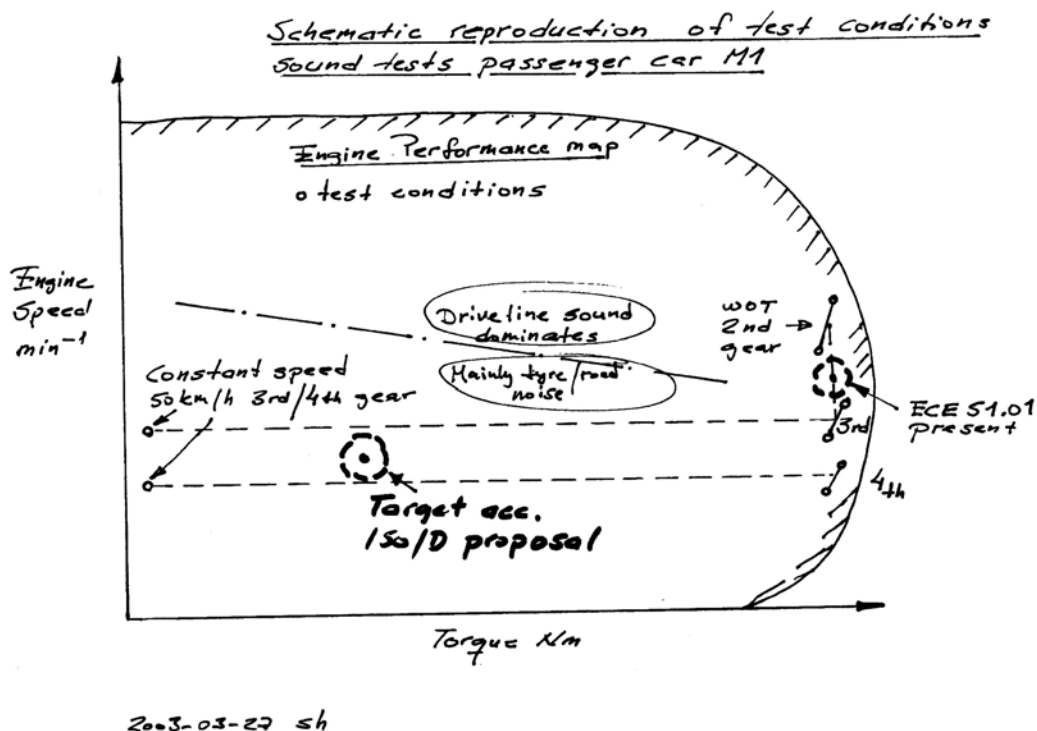 Schematic reproduction of test conditions
Sound tests passenger car M1
Engine Performance map
o test conditions
Engine
Speed
min⁻¹
Driveline sound
dominates
Mainly tyre/road
noise
WOT
2nd
gear
Constant speed
50 km/h 3rd/4th gear
ECE 51.01
present
3rd
4th
Target acc.
ISO/D proposal
Torque Nm
2003-03-27 sh